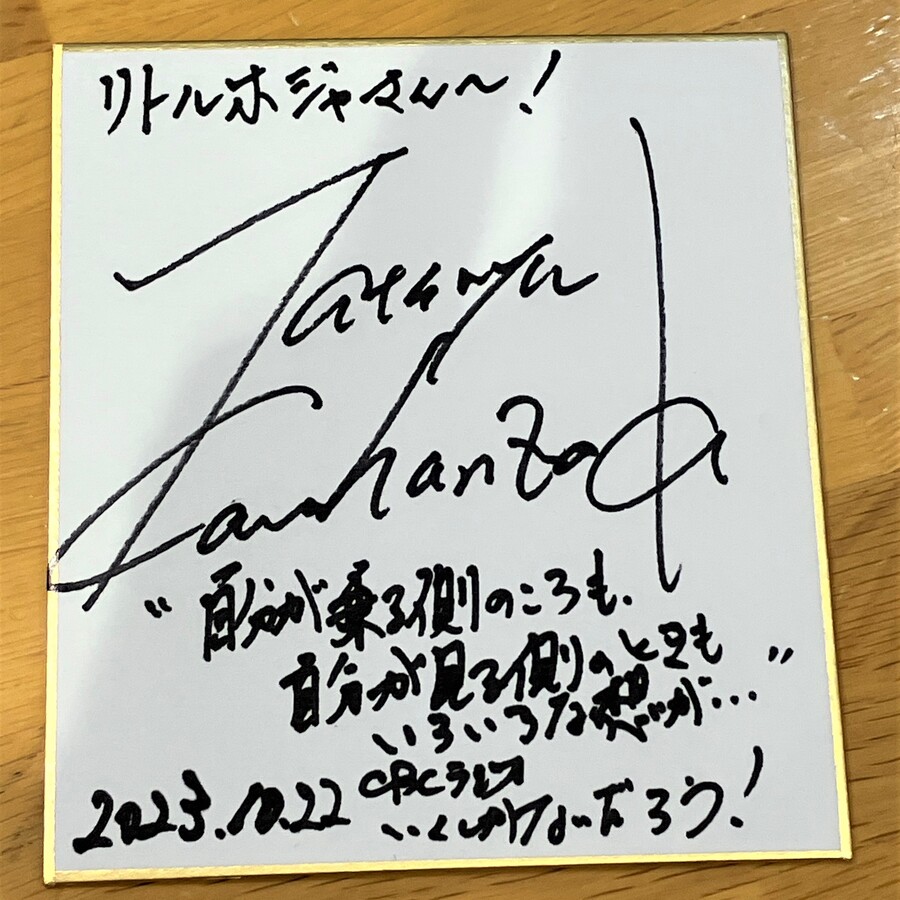 リトルホジャさん〜!
Tatsuya
Kawahara
"自分が乗る側のころも、
自分が見る側のときも
いろいろな想いが..."
2023.10.22
CBCラジオ
いくしかないだろう!